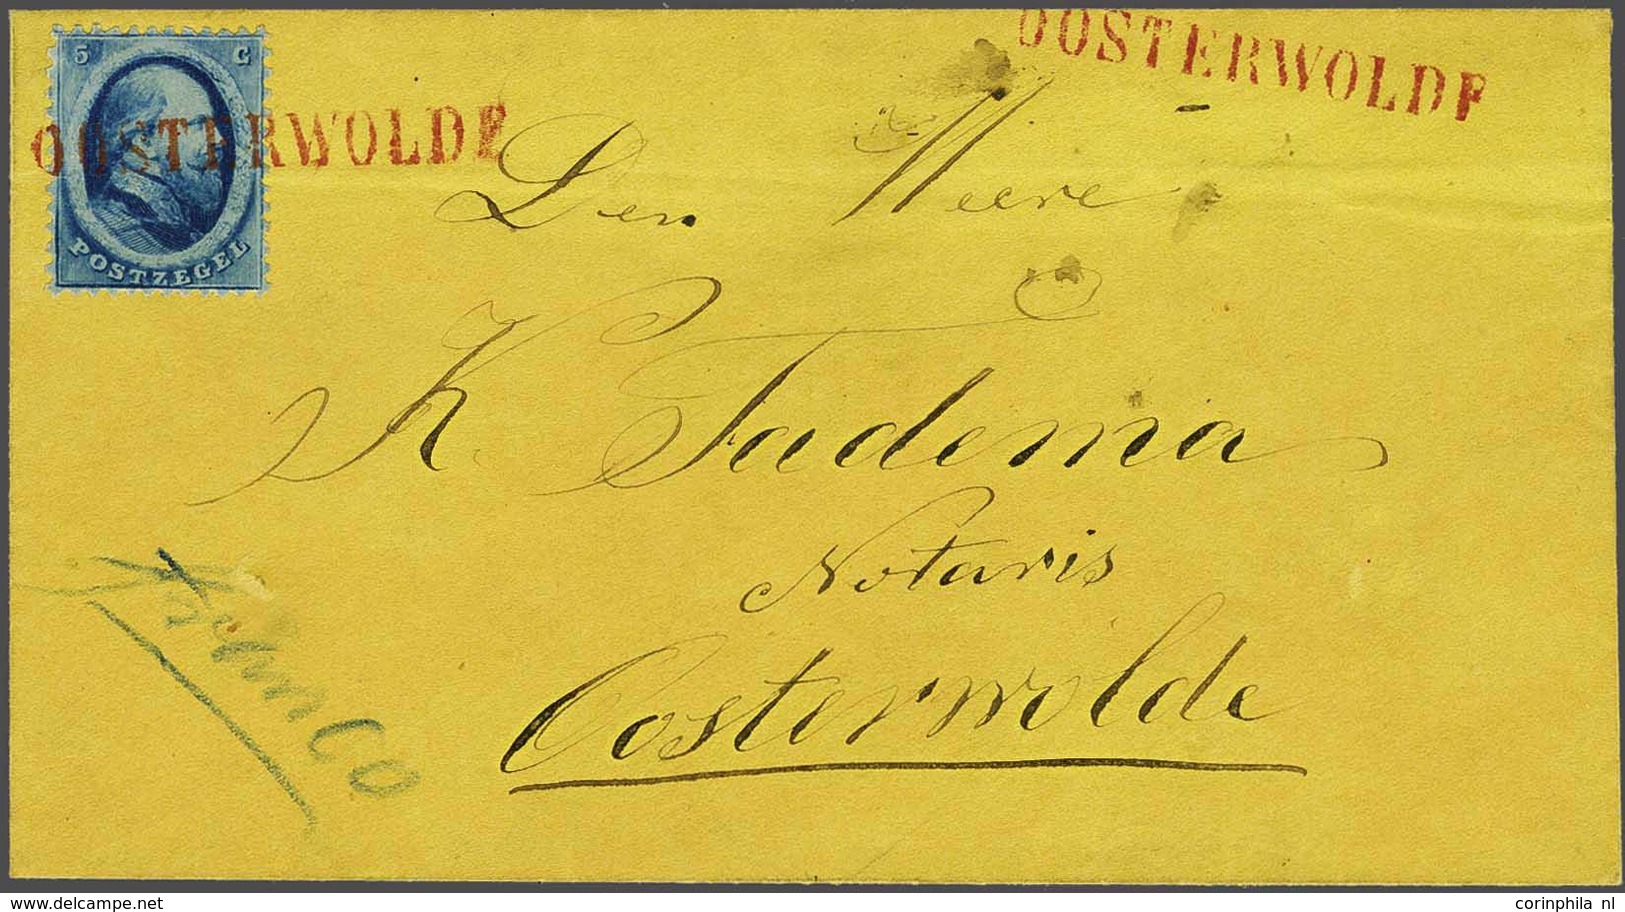 5 C
POSTZEGEL
OOSTERWOLDE
OOSTERWOLDE
Den Heere
K. Tadema
Notaris
Oosterwolde
franco
www.delcampe.net
corinphila nl